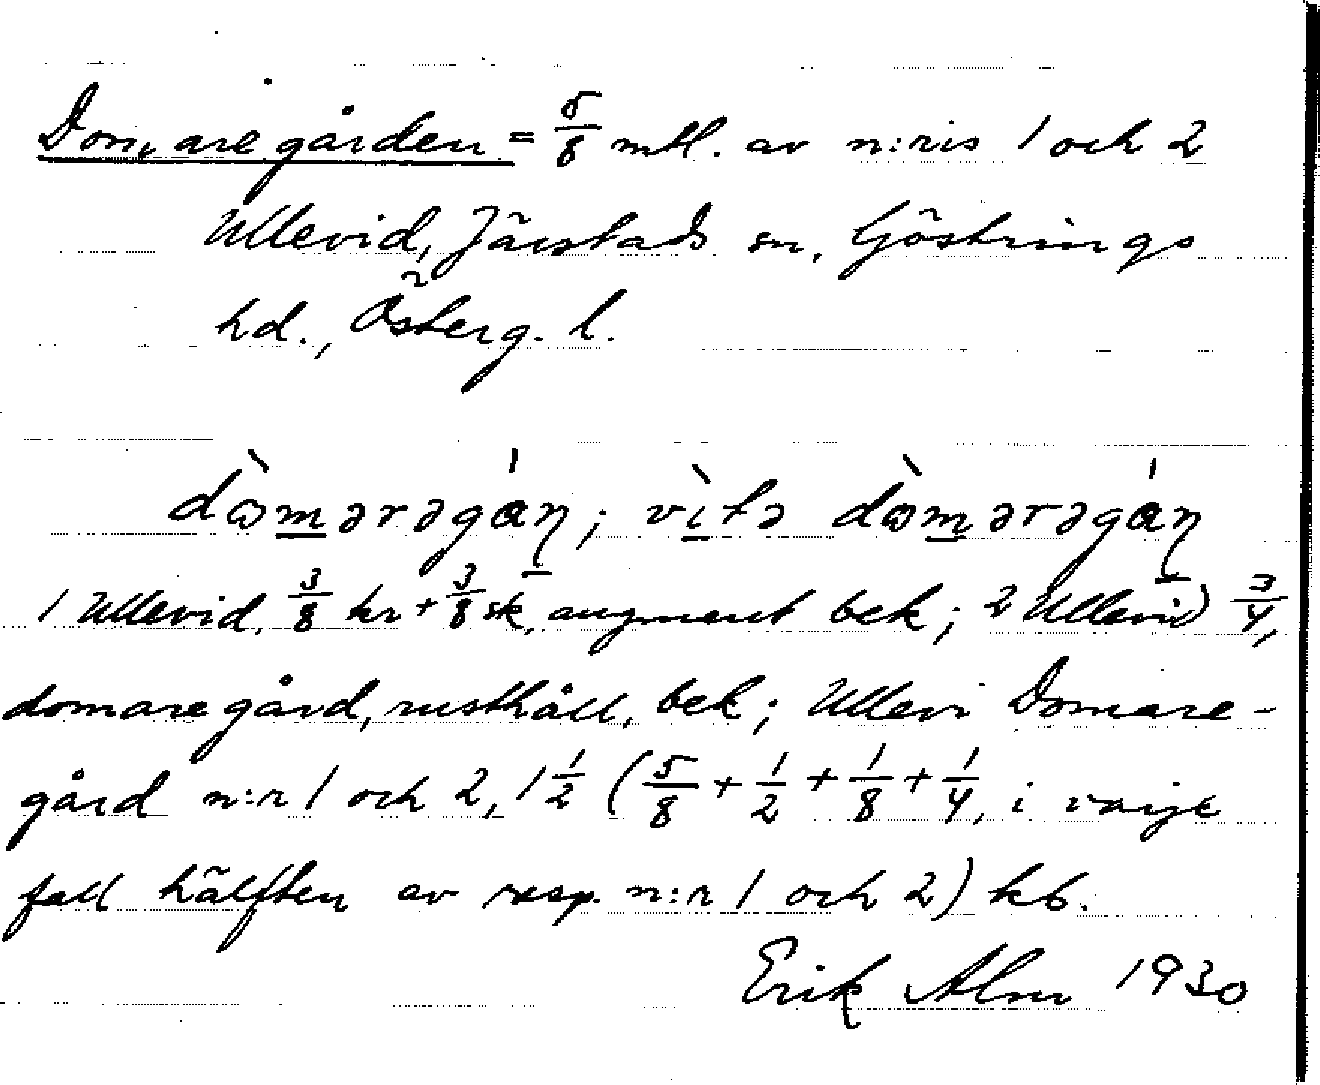 Domaregården = 5/8 mtl. av n:ris 1 och 2
Ullevid, Järstads sn, Göstrings
hd., Österg. l.
dɷ̀m̲ərəgáṉ; vì̲tə dɷ̀m̲ərəgáṉ
1 Ullevid, 3/8 kr + 3/8 sk, augment bek; 2 Ullevi) 3/4,
domaregård, rusthåll, bek; Ullevi Domare-
gård n:r 1 och 2, 1 1/2 (5/8 + 1/2 + 1/8 + 1/4, i varje
fall hälften av resp. n:r 1 och 2) kb.
Erik Alm 1930